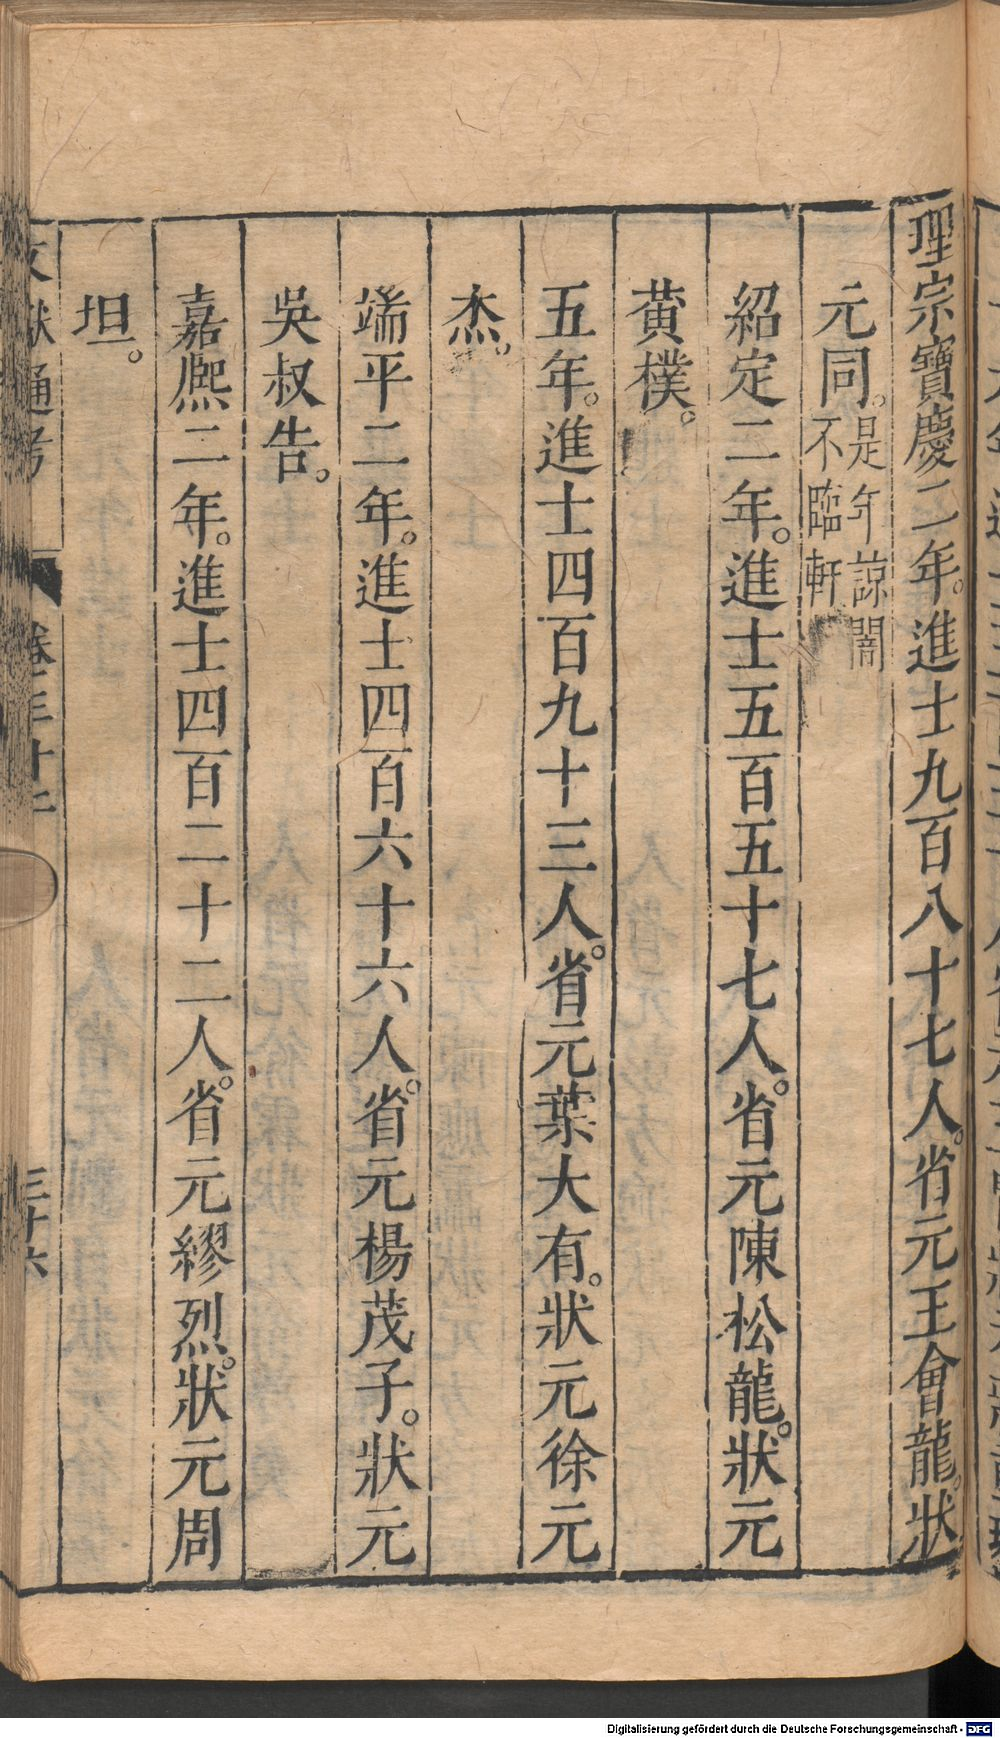 理宗寶慶二年。進士九百八十七人。省元王會龍。狀
元同。是年諒闇不臨軒
紹定二年。進士五百五十七人。省元陳松龍。狀元
黄樸。
五年。進士四百九十三人。省元葉大有。狀元徐元
杰。
端平二年。進士四百六十六人。省元楊茂子。狀元
吳叔告。
嘉熈二年。進士四百二十二人。省元繆烈。狀元周
坦。
文獻通考 卷三十二 三十六
Digitalisierung gefördert durch die Deutsche Forschungsgemeinschaft - DFG